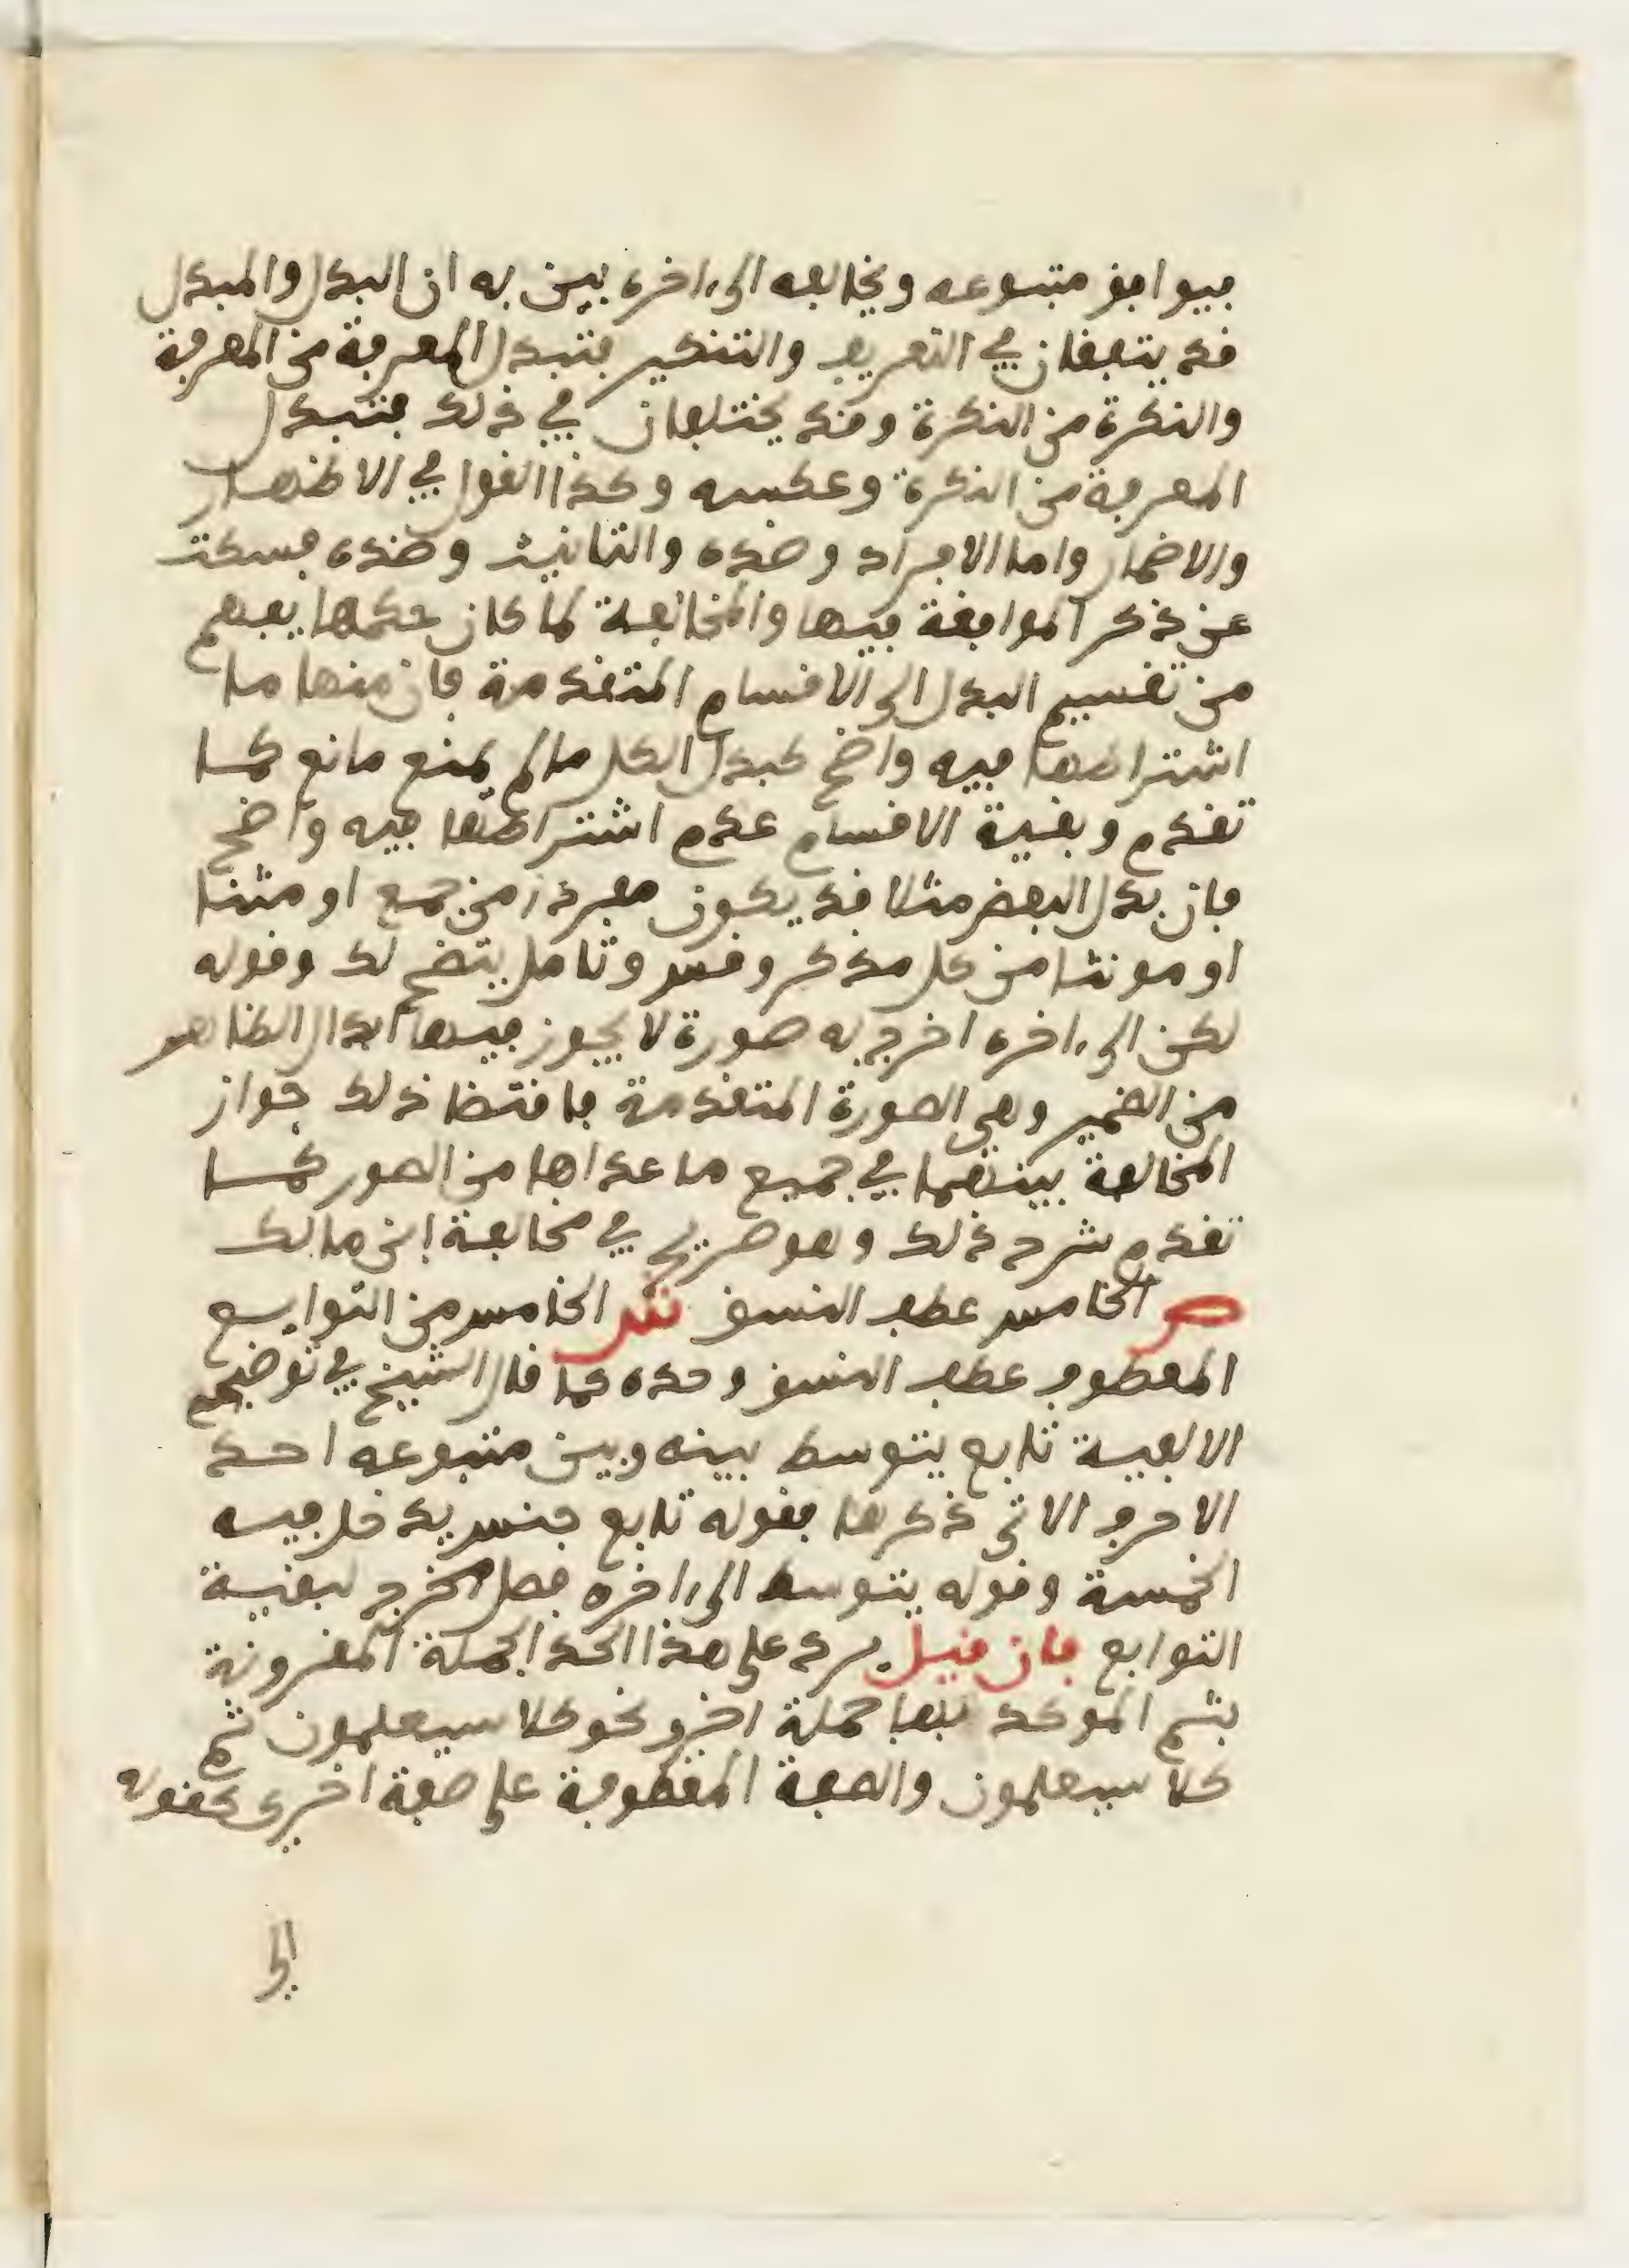 فيوافق متبوعه ويخالفه الى ءاخره بين به ان البدل والمبدل
قد يتفقان في التعريف والتنكير فتبدل المعرفة من المعرفة
والنكرة من النكرة وقد يختلفان في ذلك فتبدل
المعرفة من النكرة وعكسه وكذا القول في الاظهار
والاضمار واما الافراد وضده والتانيث وضده فسكت
عن ذكر الموافقة فيها والمخالفة لما كان حكمها يفهم
من تقسيم البدل الى الاقسام المتقدمة فان منها ما
اشتراطها فيه واضح كبدل الكل ما لم يمنع مانع كما
تقدم وبقية الاقسام عدم اشتراطها فيه واضح
فان بدل البعض مثلا قد يكون مفردا من جمع او مثنا
او مونثا من كل مذكر وقس وتامل يتضح لك وقوله
لكن الى ءاخره اخرج به صورة لا يجوز فيها ابدال الظاهر
من الضمير وهي الصورة المتقدمة فاقتضا ذلك جواز
المخالفة بينهما في جميع ما عداها من الصور كما
تقدم شرح ذلك وهو صريح في مخالفة ابن مالك
ص الخامس عطف النسق ش الخامس من التوابع
المعطوف عطف النسق وحده كما قال الشيخ في توضيح
الالفية تابع يتوسط بينه وبين متبوعه احد
الاحرف الاتي ذكرها فقوله تابع جنس يدخل فيه
الخمسة وقوله يتوسط الى ءاخره فصل مخرج لبقية
التوابع فان قيل يرد على هذا الحد الجملة المقرونة
بثم الموكد بها جملة اخرى نحو كلا سيعلمون ثم
كلا سيعلمون والصفة المعطوفة على صفة اخرى كقوله
الى